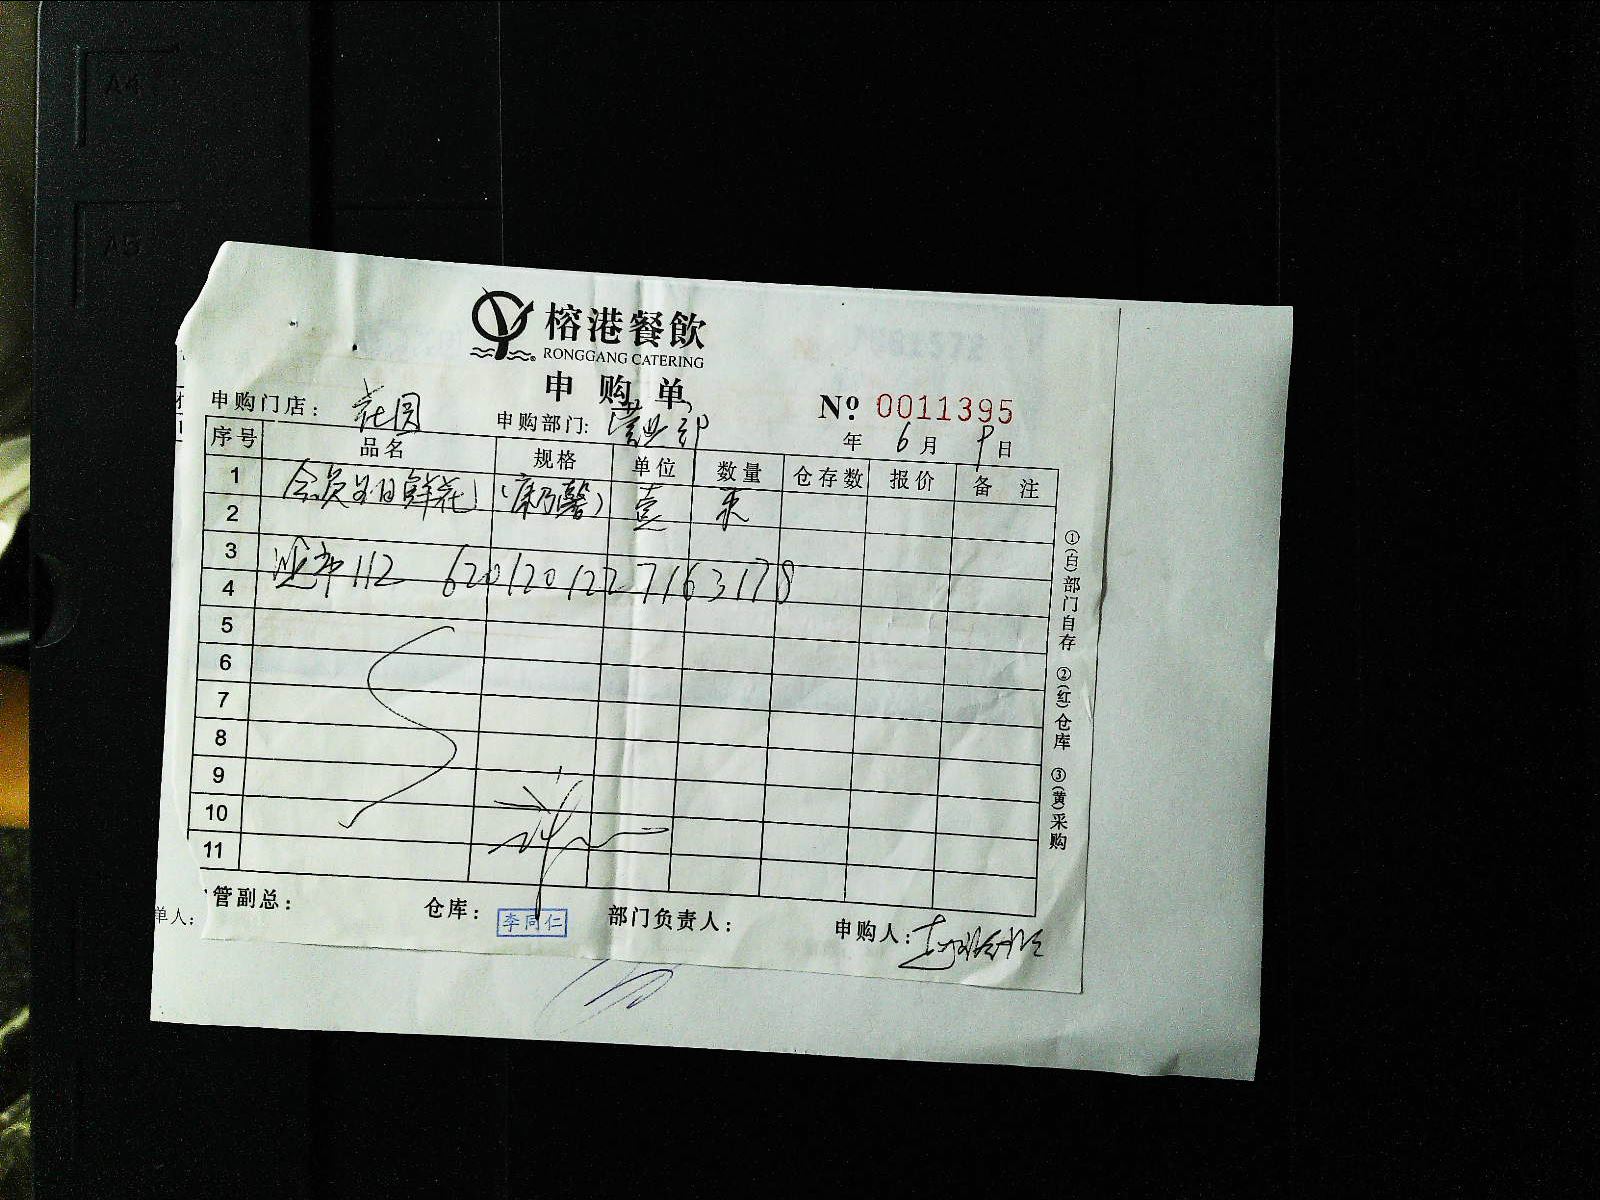 A4
A5
榕港餐飲
RONGGANG CATERING
申购单
申购门店: 花园
申购部门: 营业部
№ 0011395
年 6月 9日
序号 品名 规格 单位 数量 仓存数 报价 备注
1 会员生日鲜花 (康乃馨) 壹 束
2
3 112 6201201227163178
4
5
6
7
8
9
10
11
①(白)部门自存 ②(红)仓库 ③(黄)采购
管副总: 仓库: 李同仁 部门负责人: 申购人:
单人: